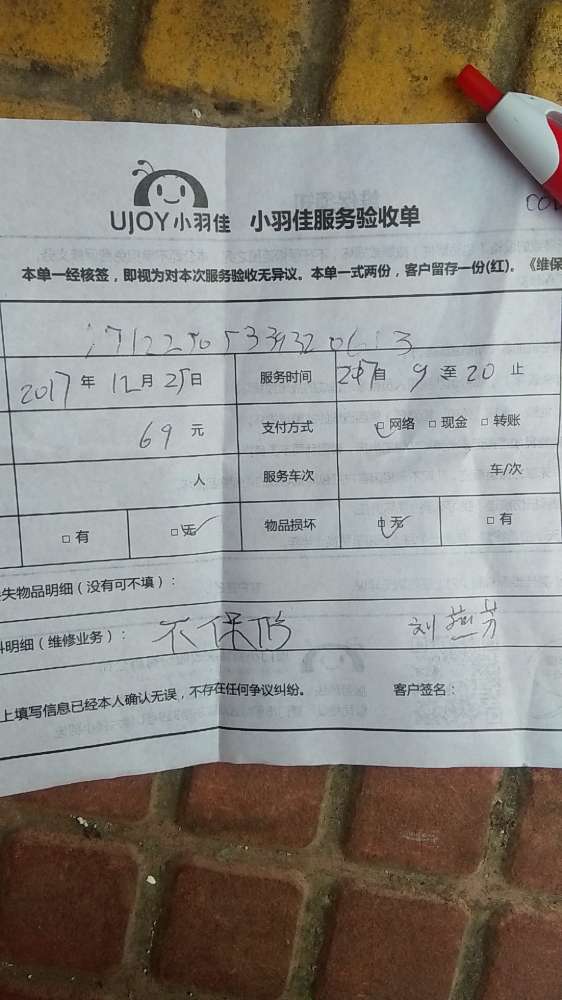 UJOY小羽佳 小羽佳服务验收单
本单一经核签，即视为对本次服务验收无异议。本单一式两份，客户留存一份(红)。《维保
2017 年 12月 25日 服务时间 自 9 至 20 止
69 元 支付方式 □网络 □现金 □转账
人 服务车次 车/次
□有 □无 物品损坏 □无 □有
失物品明细（没有可不填）：
料明细（维修业务）： 不保修 刘燕芳
上填写信息已经本人确认无误，不存在任何争议纠纷。 客户签名：